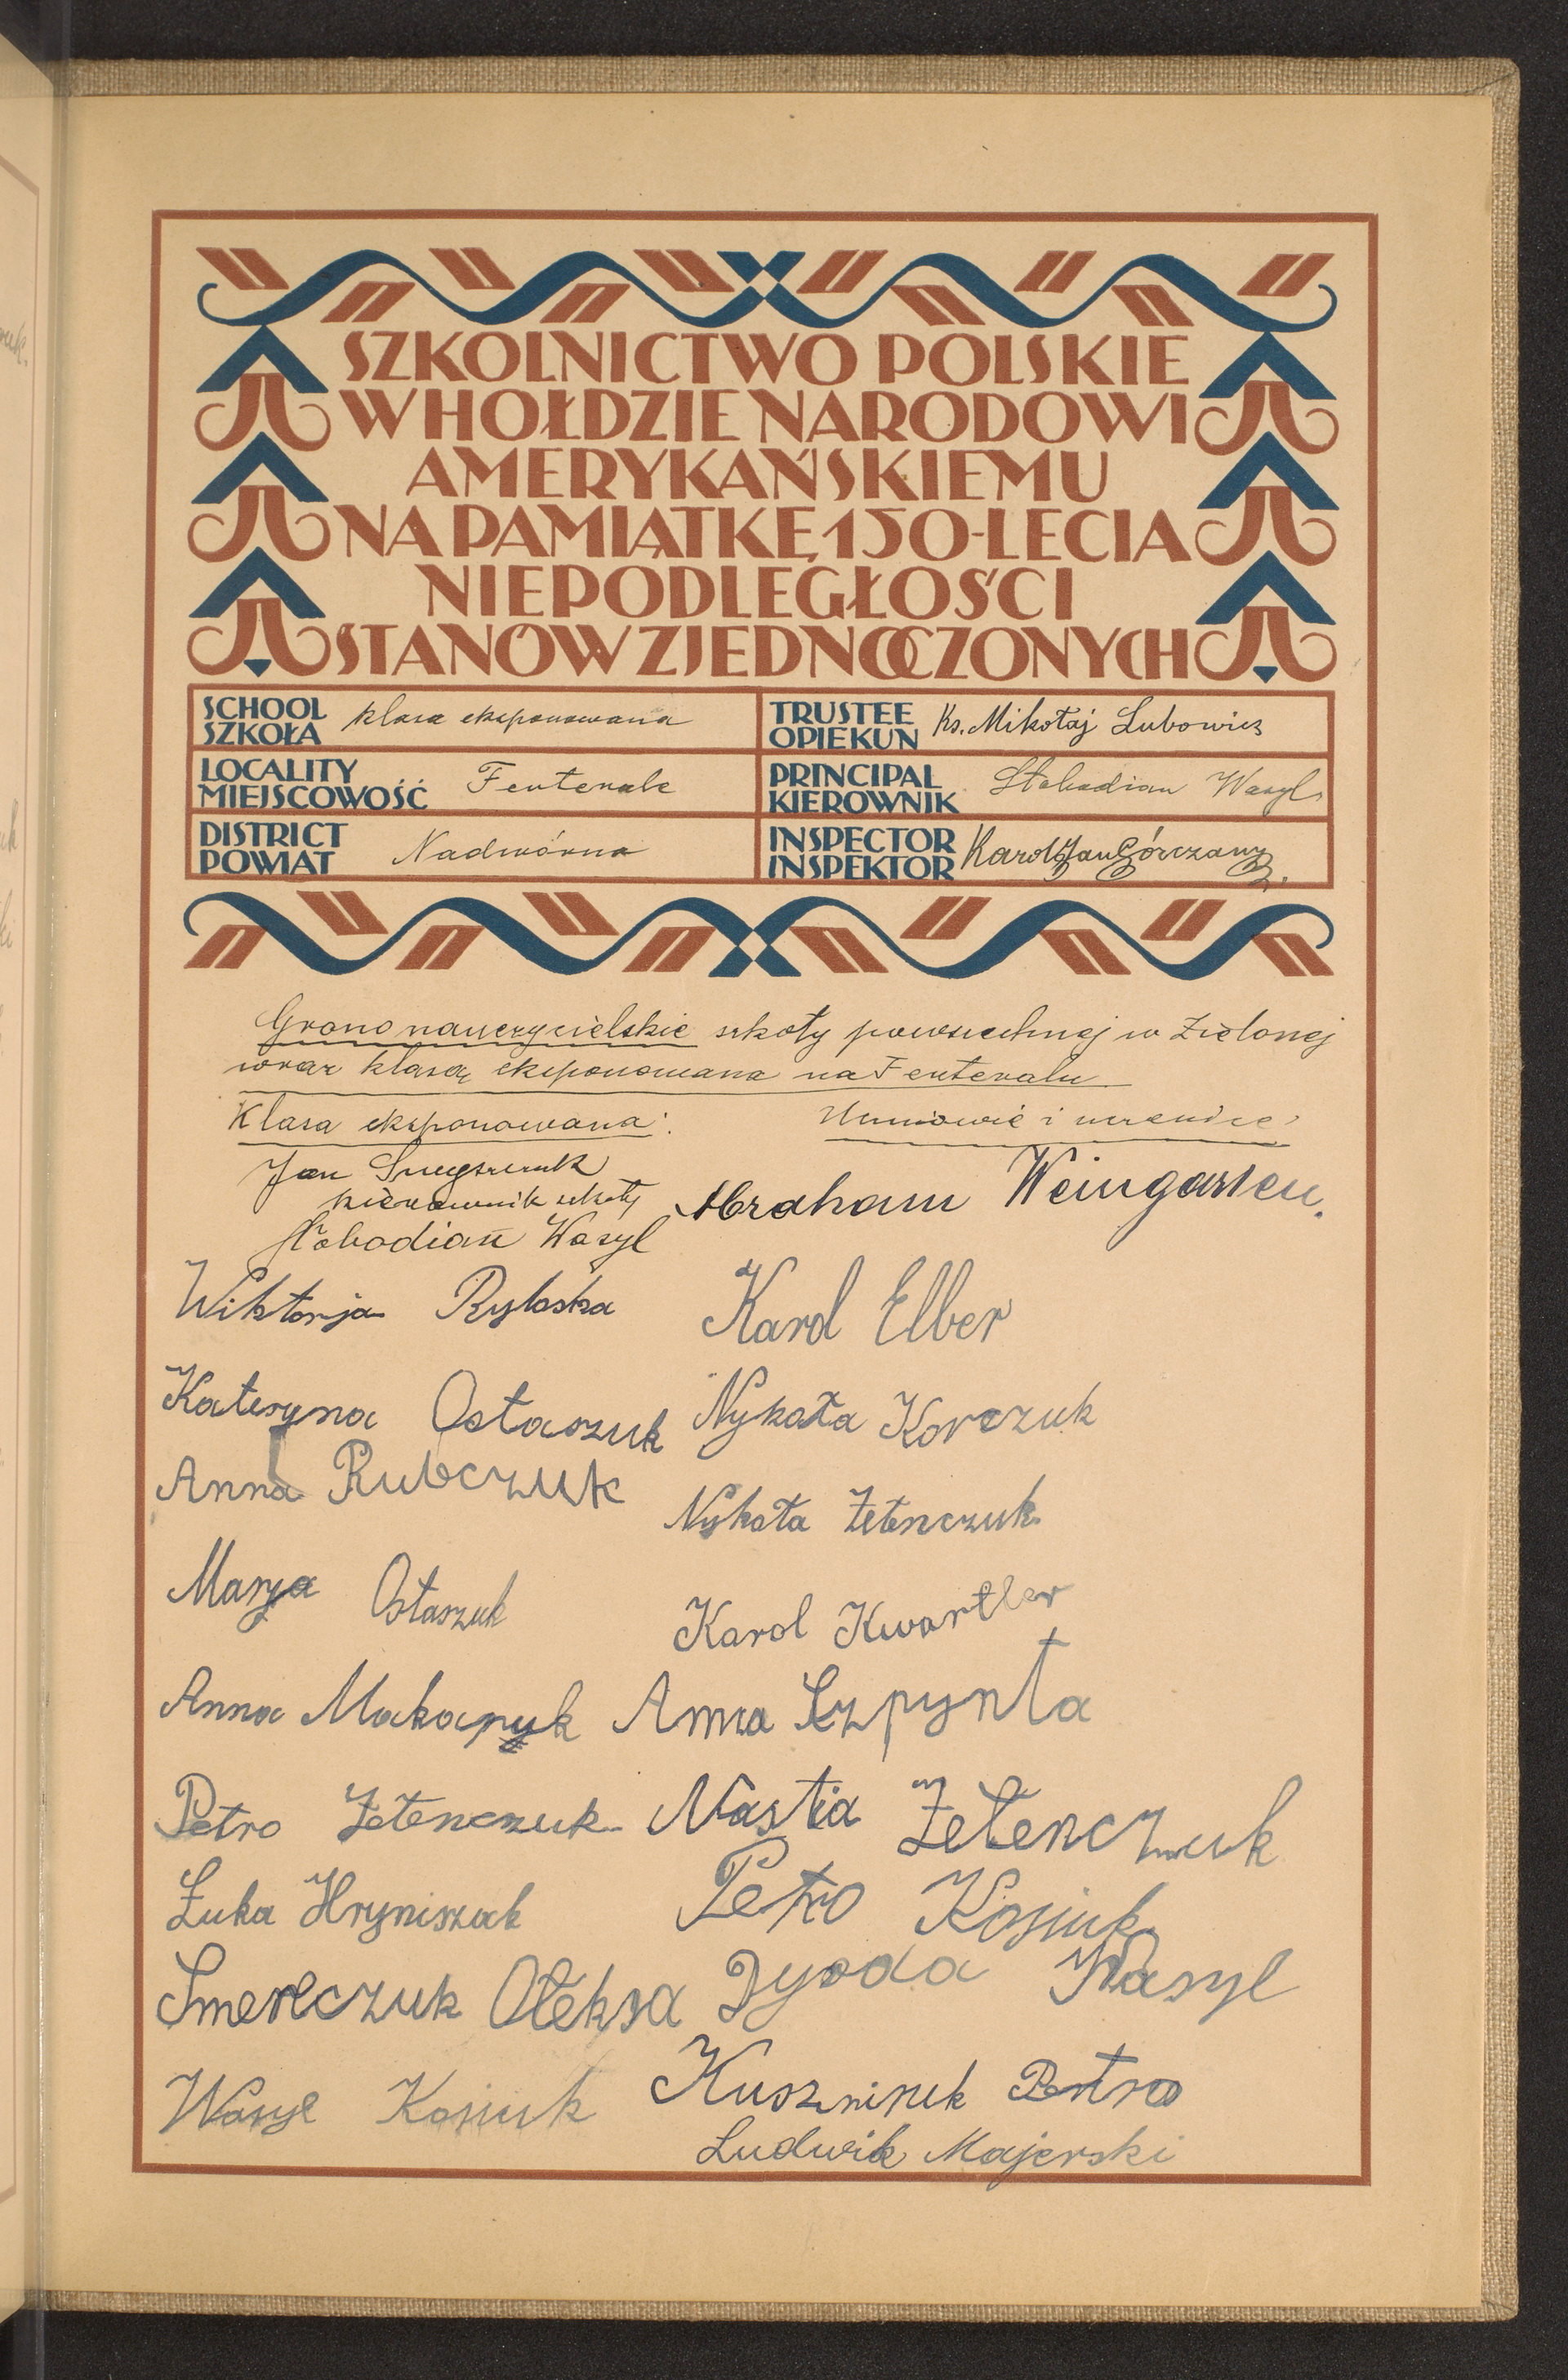 SZKOLNICTWO POLSKIE
W HOŁDZIE NARODOWI
AMERYKAŃSKIEMU
NA PAMIĄTKĘ 150-LECIA
NIEPODLEGŁOŚCI
STANÓW ZJEDNOCZONYCH
SCHOOL
SZKOŁA
klasa eksponowana
TRUSTEE
OPIEKUN
Ks. Mikołaj Lubowicz
LOCALITY
MIEJSCOWOŚĆ
Fentenale
PRINCIPAL
KIEROWNIK
Wasyl
DISTRICT
POWIAT
Nadwórna
INSPECTOR
INSPEKTOR
Karol Jan Górczany
Grono nauczycielskie szkoły powszechnej w Zielonej
wraz klasą eksponowana na Fentenalu
Klasa eksponowana:
Uczniowie i uczenice:
Jan
kierownik szkoły
Abraham Weingarten.
Wasyl
Wiktorja Rybska
Karol Elber
Kateryna Ostaszuk
Nykoła Korczuk
Anna Rubczuk
Nykoła Zełenczuk
Marya Ostaszuk
Karol Kwartler
Anna Makaryk
Anna Szpynta
Petro Zełenczuk
Nastia Zełenczuk
Łuka Hryniszak
Petro Kosiuk
Smereczuk Ołeksa
Dyoda Wasyl
Wasyl Kosiuk
Kuszniruk Petro
Ludwik Majerski